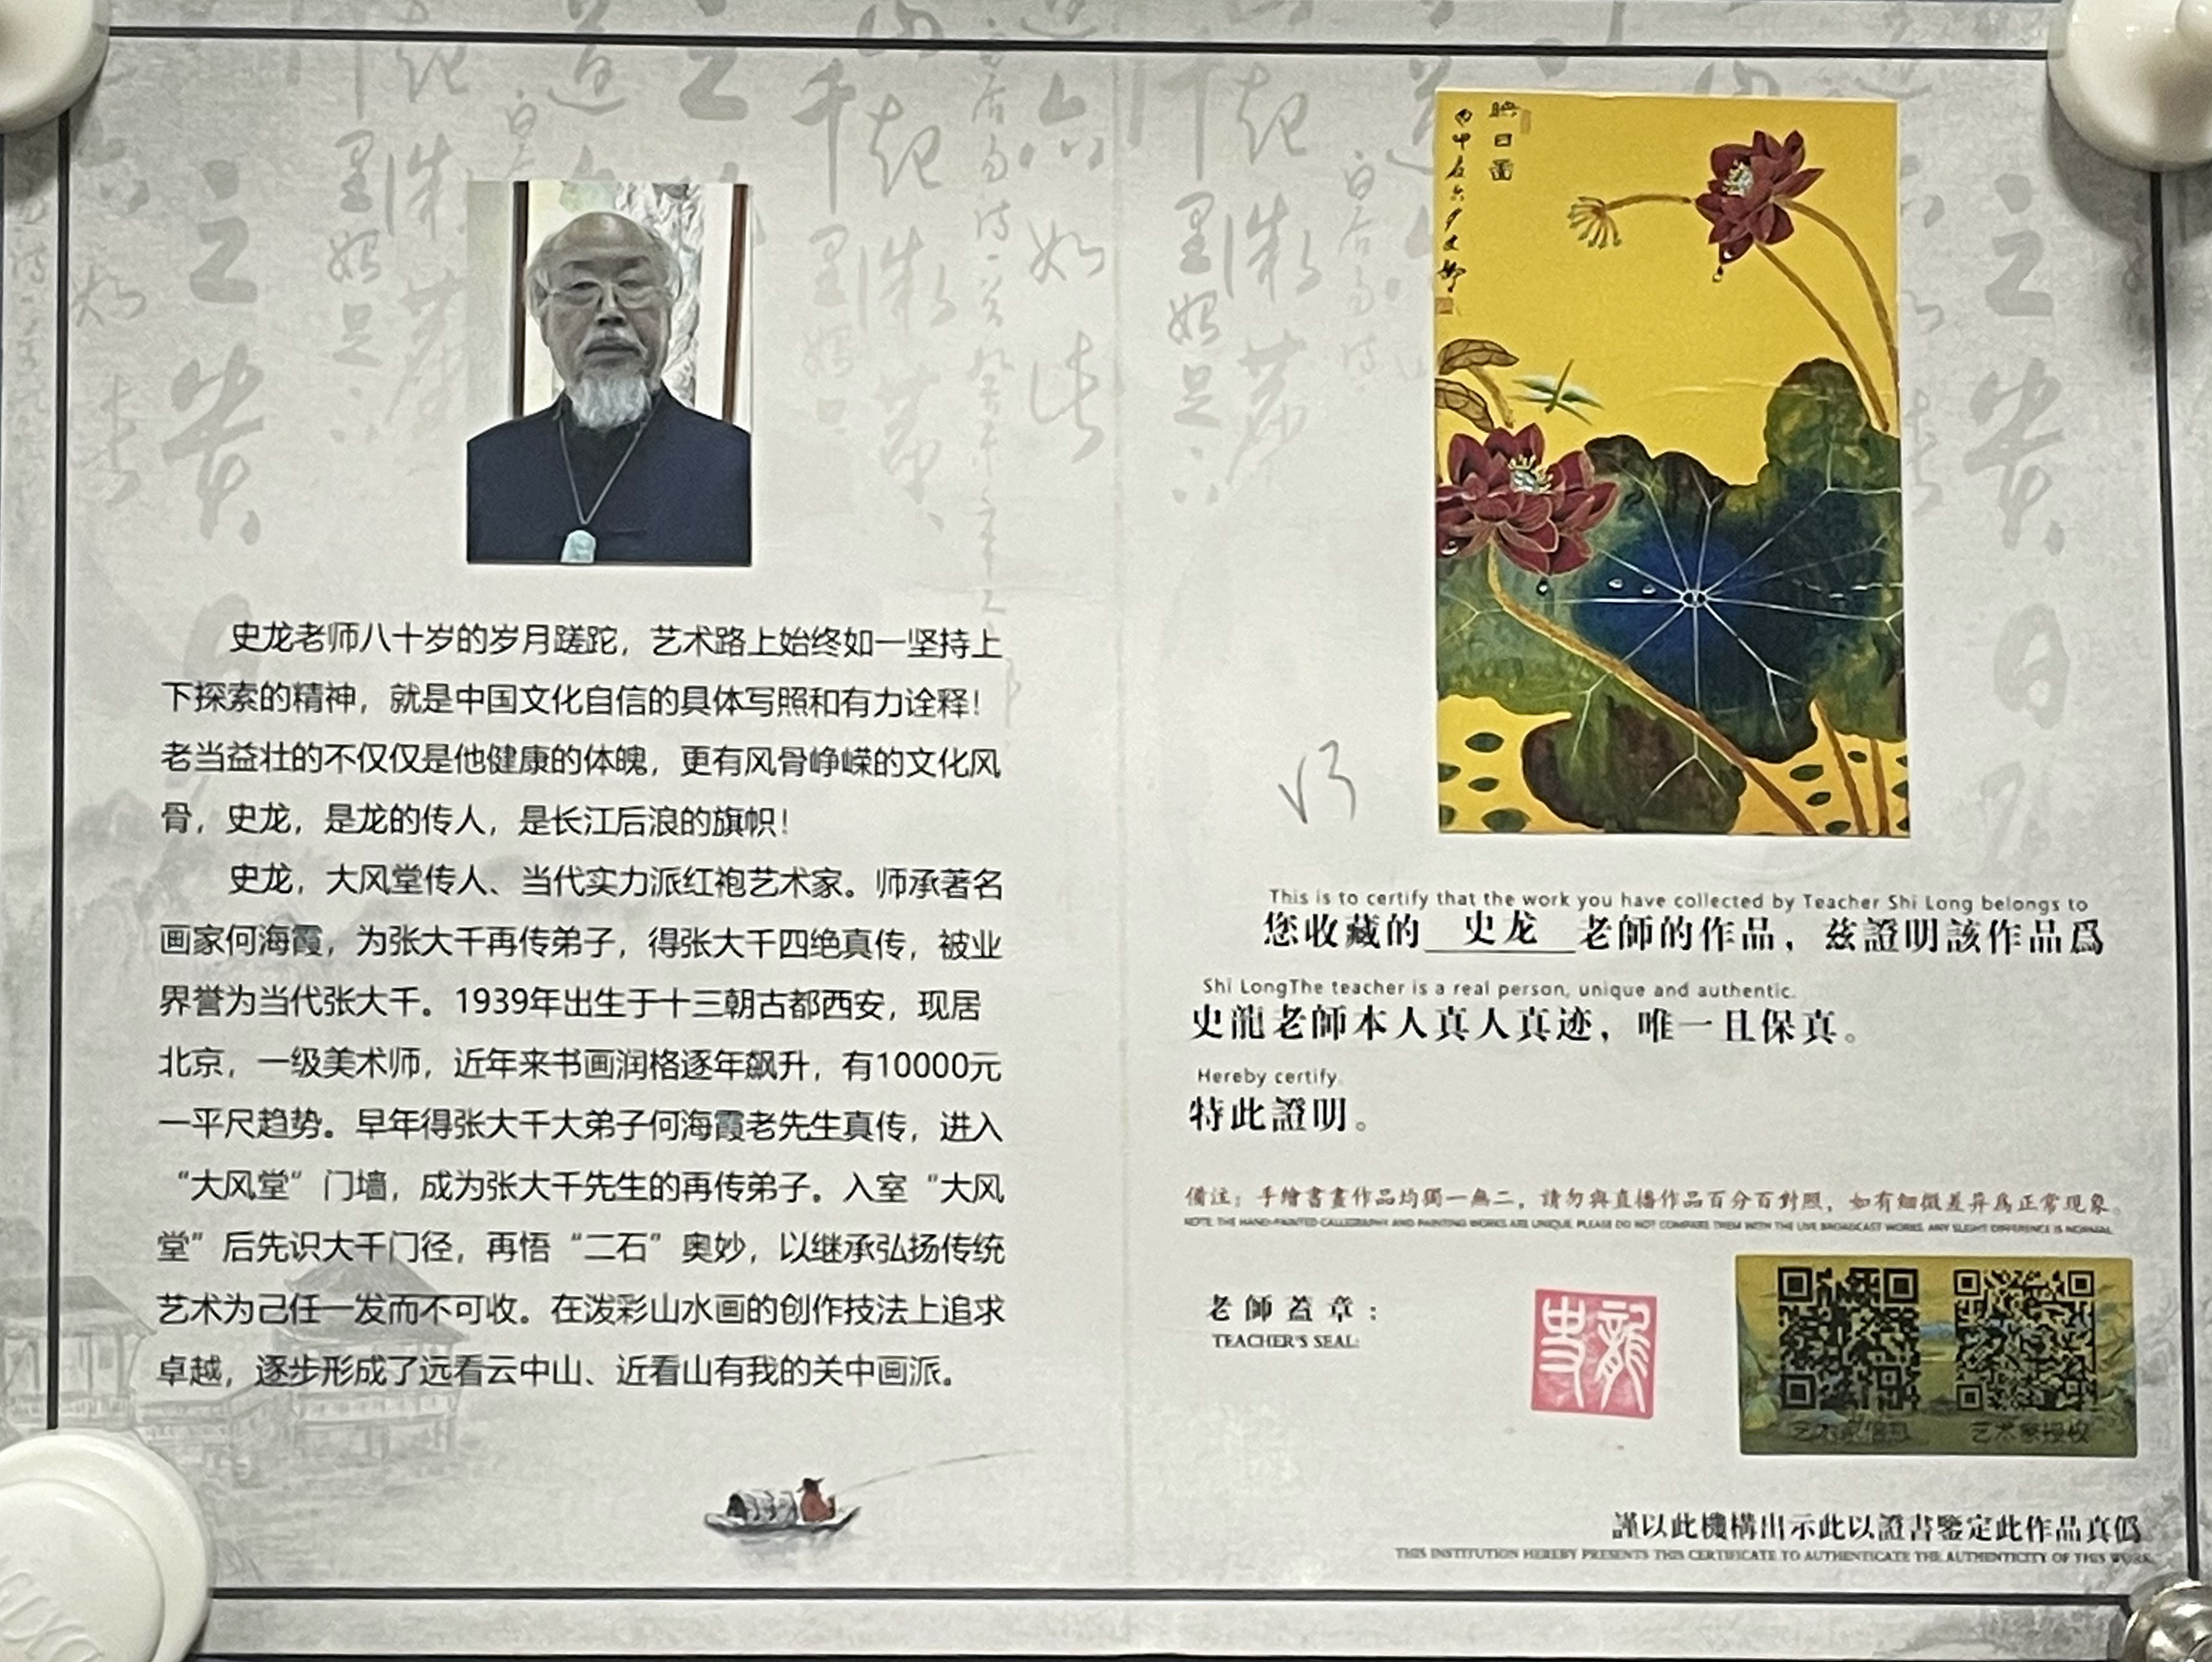 史龙老师八十岁的岁月蹉跎，艺术路上始终如一坚持上
下探索的精神，就是中国文化自信的具体写照和有力诠释！
老当益壮的不仅仅是他健康的体魄，更有风骨峥嵘的文化风
骨，史龙，是龙的传人，是长江后浪的旗帜！
史龙，大风堂传人、当代实力派红袍艺术家。师承著名
画家何海霞，为张大千再传弟子，得张大千四绝真传，被业
界誉为当代张大千。1939年出生于十三朝古都西安，现居
北京，一级美术师，近年来书画润格逐年飙升，有10000元
一平尺趋势。早年得张大千大弟子何海霞老先生真传，进入
“大风堂”门墙，成为张大千先生的再传弟子。入室“大风
堂”后先识大千门径，再悟“二石”奥妙，以继承弘扬传统
艺术为己任一发而不可收。在泼彩山水画的创作技法上追求
卓越，逐步形成了远看云中山、近看山有我的关中画派。
映日圖
This is to certify that the work you have collected by Teacher Shi Long belongs to
您收藏的 史龙 老師的作品，兹證明該作品爲
Shi LongThe teacher is a real person, unique and authentic.
史龍老師本人真人真迹，唯一且保真。
Hereby certify.
特此證明。
備注：手繪書畫作品均獨一無二，請勿與直播作品百分百對照，如有細微差异爲正常現象。
NOTE: THE HAND-PAINTED CALLIGRAPHY AND PAINTING WORKS ARE UNIQUE. PLEASE DO NOT COMPARE THEM WITH THE LIVE BROADCAST WORKS. ANY SLIGHT DIFFERENCE IS NORMAL.
老師蓋章：
TEACHER'S SEAL:
史龍
艺术家信息 艺术家授权
謹以此機構出示此以證書鑒定此作品真僞
THIS INSTITUTION HEREBY PRESENTS THIS CERTIFICATE TO AUTHENTICATE THE AUTHENTICITY OF THIS WORK